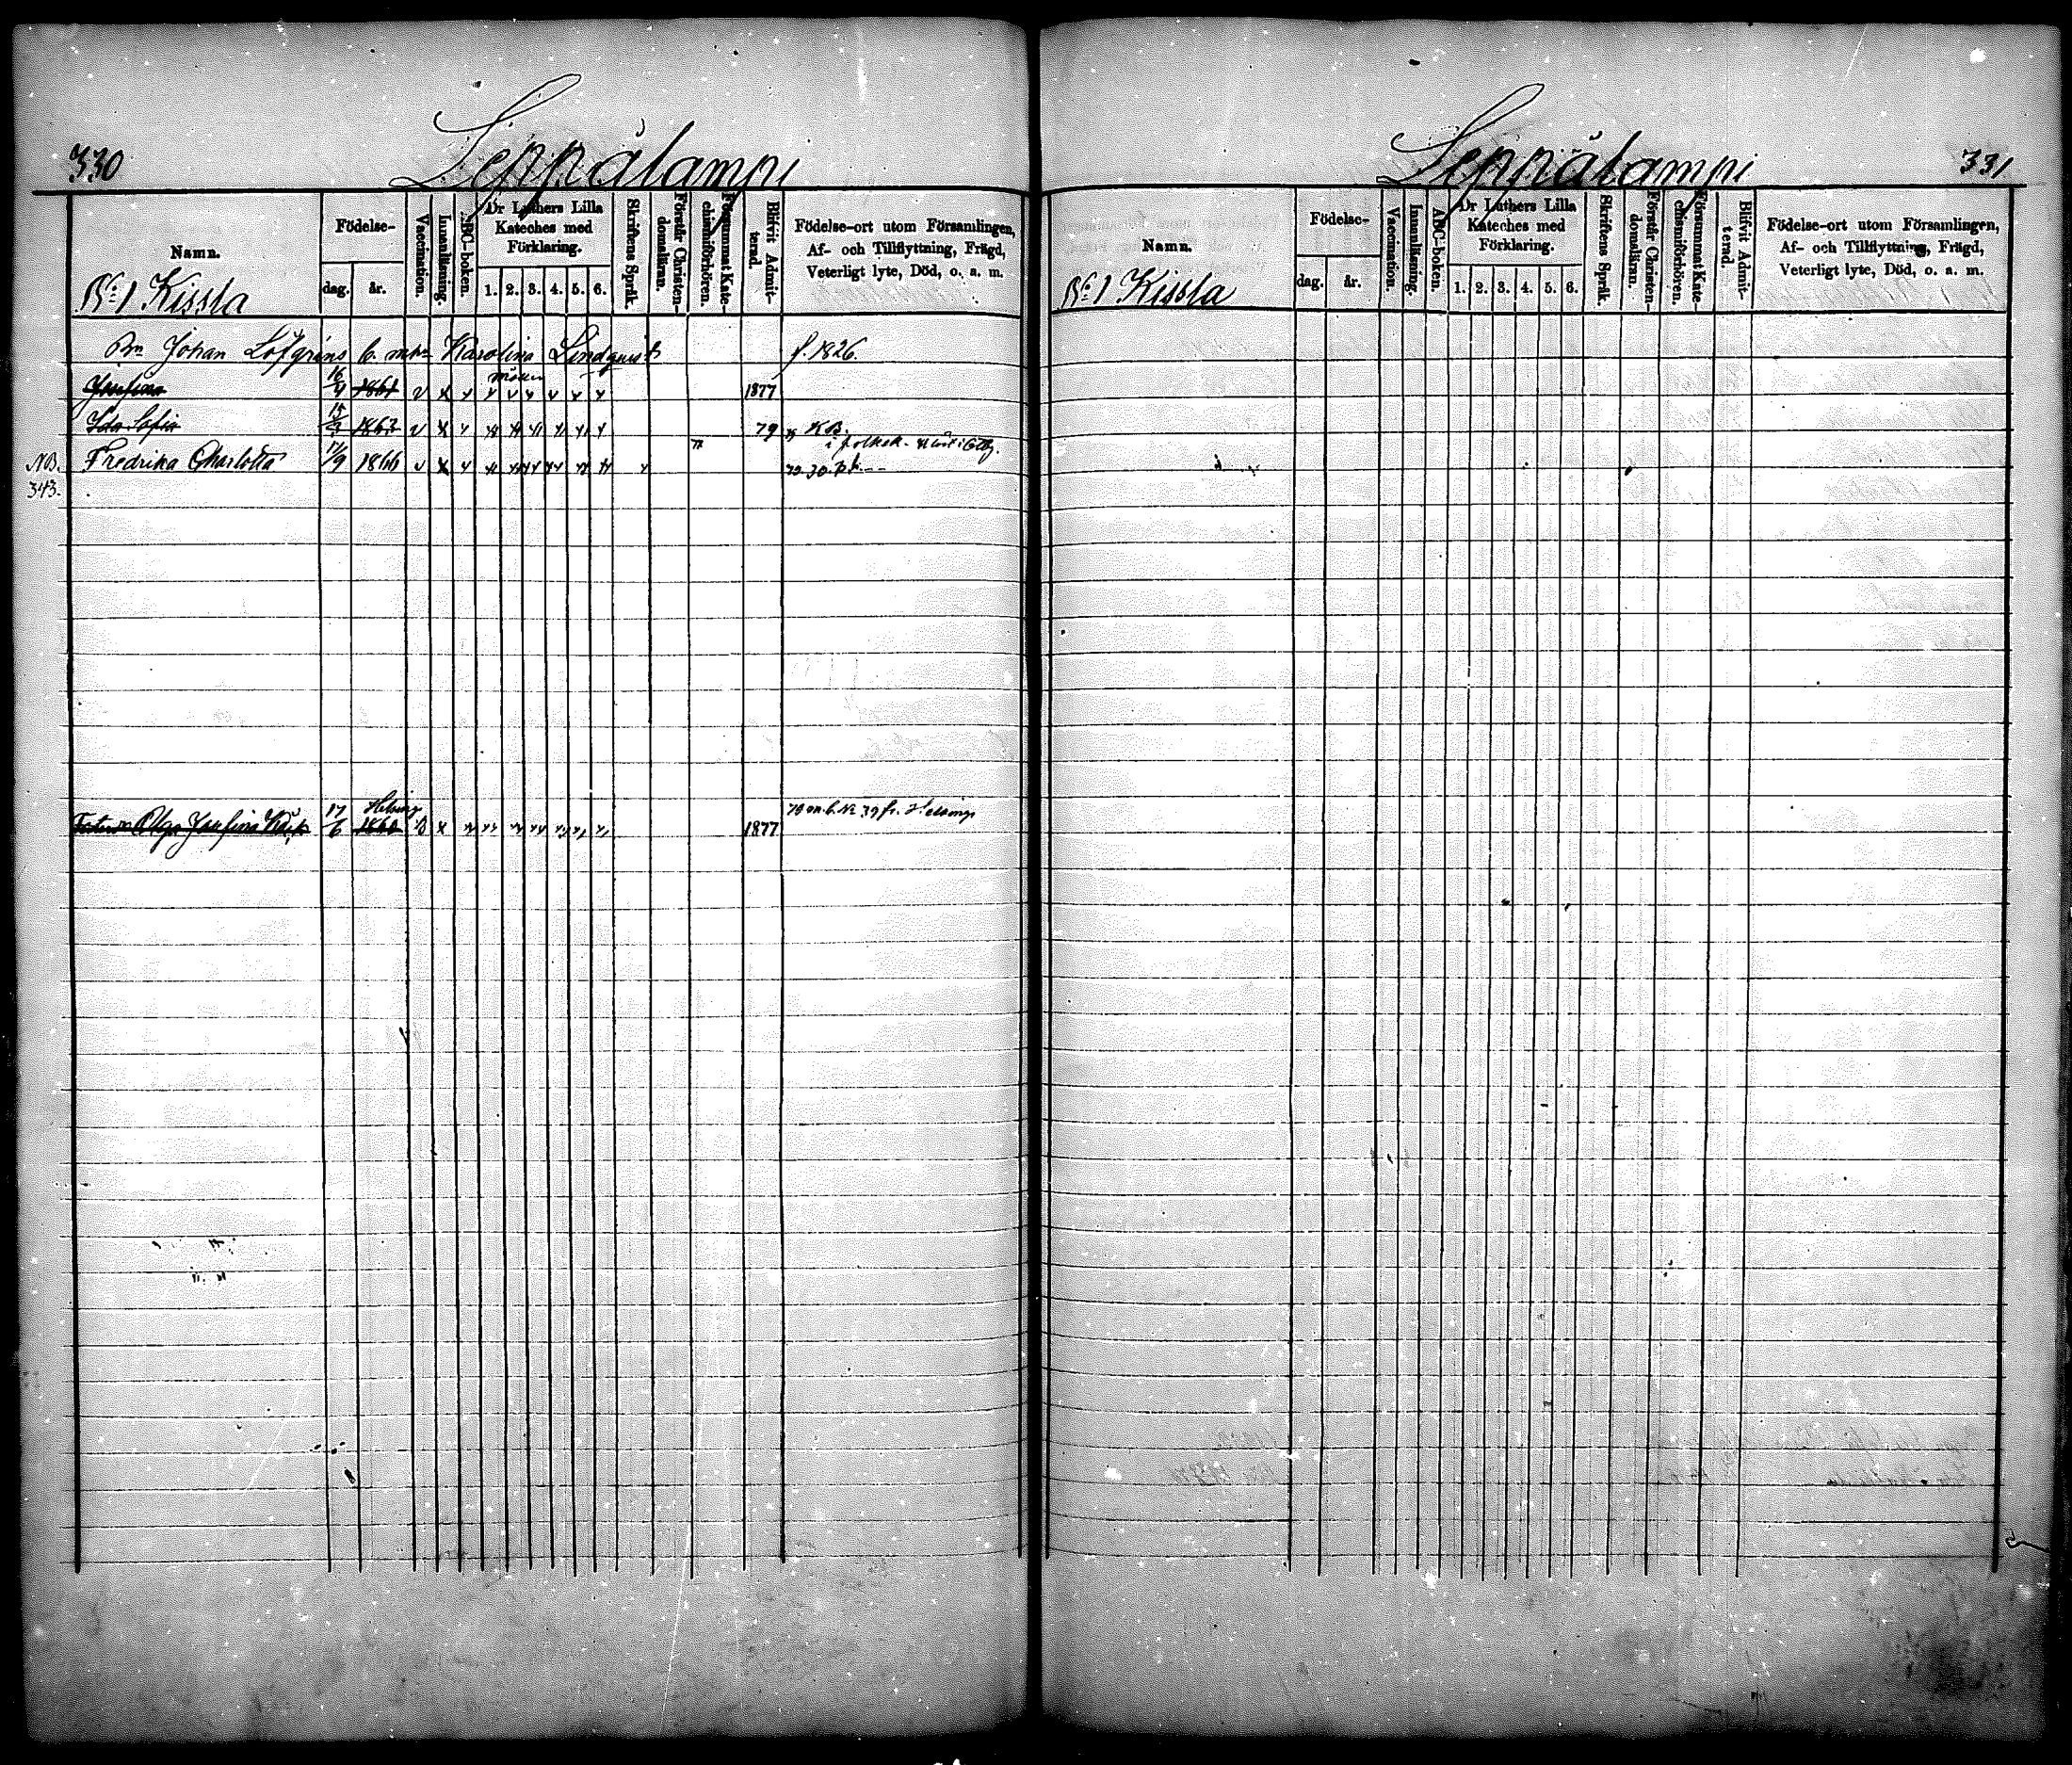 330
Leppälampi
Namn.
Födelse-
dag.
år.
Vaccination.
Innanläsning.
ABC-boken.
Dr Luthers Lilla
Kateches med
Förklaring.
1. 2. 3. 4. 5. 6.
Skriftens Språk.
Förstår Christen-
domsläran.
Försummat Kate-
chismiförhören.
Blifvit Admit-
terad.
Födelse-ort utom Församlingen,
Af- och Tillflyttning, Frägd,
Veterligt lyte, Död, o. a. m.
No 1 Kissla
Bn Johan Löfgrens Karolina Lindquist f. 1826.
Josefina 16/4 1861 1877
Ida Sofia 1863 79 KB.
i folksk.
NB. Fredrika Charlotta 17/9 1866
343.
Helsing
Olga Josefina 17/6 1860 1877 fr. Helsing
Leppälampi
331
Namn.
Födelse-
dag.
år.
Vaccination.
Innanläsning.
ABC-boken.
Dr Luthers Lilla
Kateches med
Förklaring.
1. 2. 3. 4. 5. 6.
Skriftens Språk.
Förstår Christen-
domsläran.
Försummat Kate-
chismiförhören.
Blifvit Admit-
terad.
Födelse-ort utom Församlingen,
Af- och Tillflyttning, Frägd,
Veterligt lyte, Död, o. a. m.
No 1 Kissla